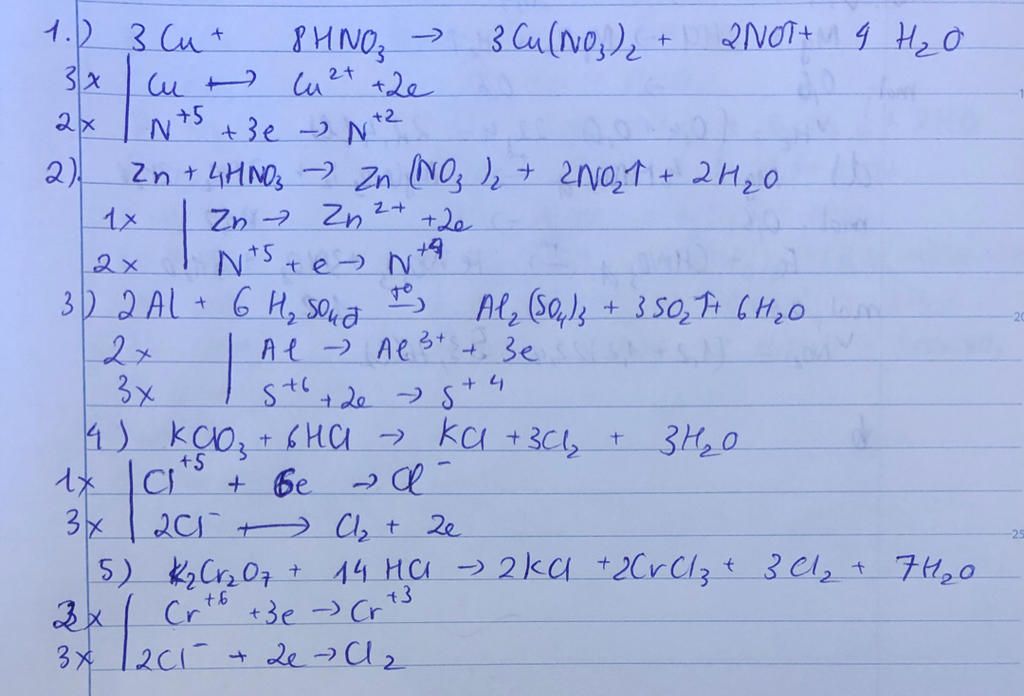 1.) 3Cu + 8HNO₃ → 3Cu(NO₃)₂ + 2NO↑ + 4 H₂O
3x | Cu ⟼ Cu²⁺ + 2e
2x | N⁺⁵ + 3e → N⁺²
2). Zn + 4HNO₃ → Zn(NO₃)₂ + 2NO₂↑ + 2H₂O
1x | Zn → Zn²⁺ + 2e
2x | N⁺⁵ + e → N⁺⁴
3) 2Al + 6 H₂SO₄đ →(t⁰) Al₂(SO₄)₃ + 3SO₂↑ + 6H₂O
2x | Al → Al³⁺ + 3e
3x | S⁺⁶ + 2e → S⁺⁴
4) KClO₃ + 6HCl → KCl + 3Cl₂ + 3H₂O
1x | Cl⁺⁵ + 6e → Cl⁻
3x | 2Cl⁻ ⟼ Cl₂ + 2e
5) K₂Cr₂O₇ + 14HCl → 2KCl + 2CrCl₃ + 3Cl₂ + 7H₂O
2x | Cr⁺⁶ + 3e → Cr⁺³
3x | 2Cl⁻ + 2e → Cl₂